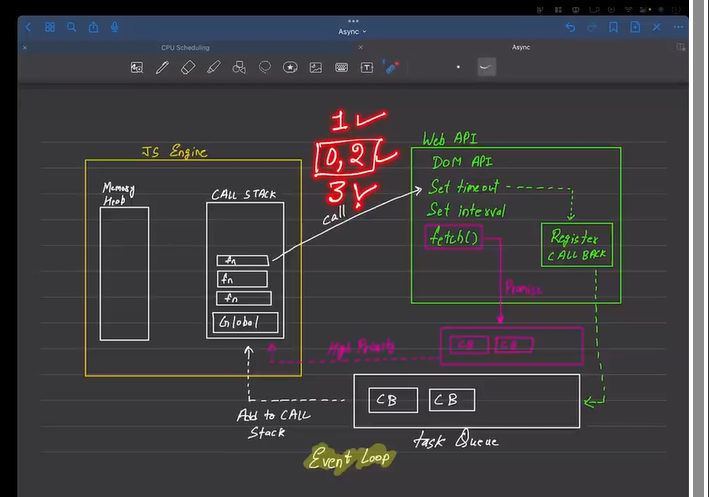 Async
CPU Scheduling
Async
1
0, 2
3
JS Engine
Memory
Heab
CALL STACK
fn
fn
fn
Global
call
Web API
DOM API
Set timeout
Set interval
fetch()
Register
CALL BACK
Promise
CB
CB
High Priority
CB
CB
Add to CALL
Stack
task Queue
Event Loop